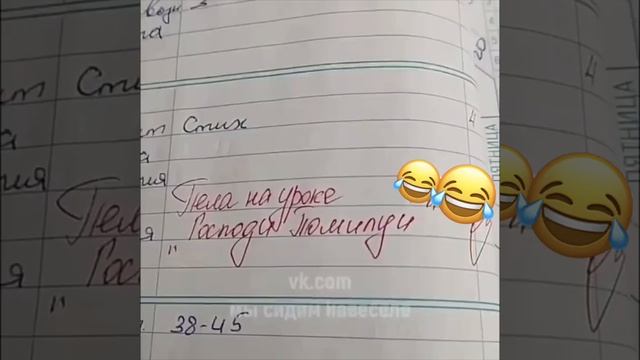 Стих
4
Пела на уроке
"Господи Помилуй"
38-45
ПЯТНИЦА
vk.com
мы сидим навеселе